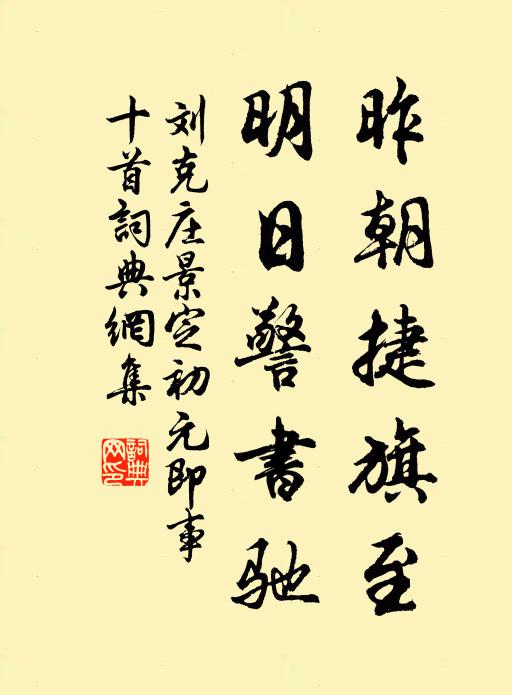 昨朝捷旗至
明日警书驰
刘克庄景定初元即事
十首词典網集
詞典网印